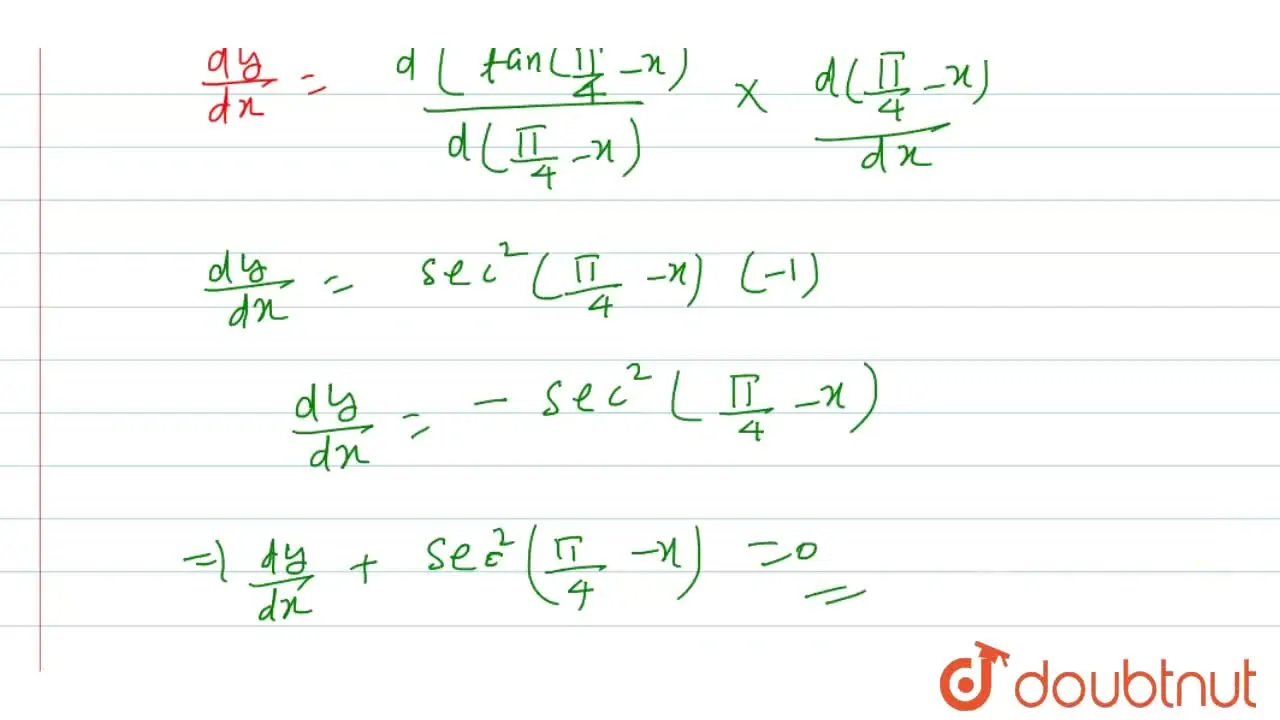 dy/dx = d(tan(π/4 - x))/d(π/4 - x) × d(π/4 - x)/dx
dy/dx = sec²(π/4 - x) (-1)
dy/dx = - sec²(π/4 - x)
=) dy/dx + sec²(π/4 - x) = 0
doubtnut